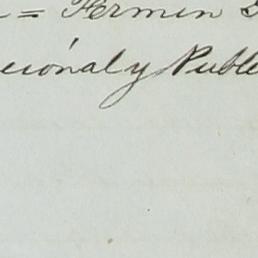 = Fermin
ecional y Publi